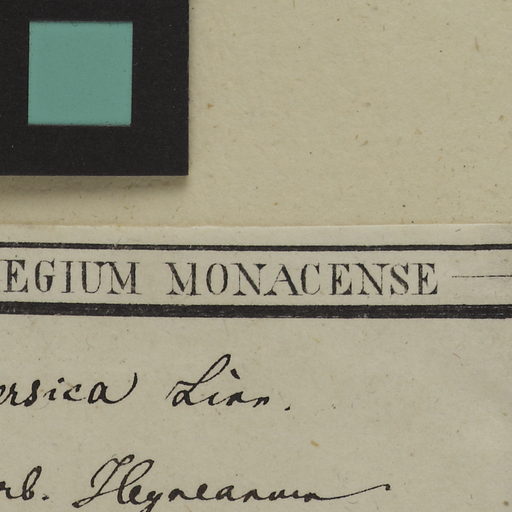 EGIUM MONACENSE
ersica Linn.
rb. Heyneanum